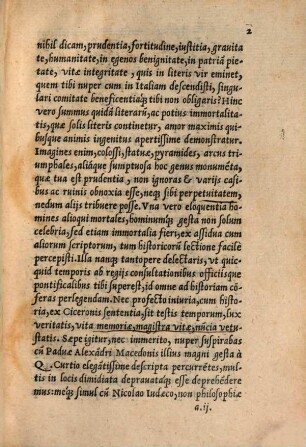 2
nihil dicam, prudentia, fortitudine, iustitia, grauita
te, humanitate, in egenos benignitate, in patriã pie
tate, vitæ integritate, quis in literis vir eminet,
quem tibi nuper cum in Italiam descendisti, singu
lari comitate beneficentiaq́; tibi non obligaris? Hinc
vero summus quidã literarũ, ac potius immortalita
tis, quæ solis literis continetur, amor maximis qui
busque animis ingenitus apertissime demonstratur.
Imagines enim, colossi, statuæ, pyramides, arcus triu
mphales, aliáque sumptuosa hoc genus monumẽta,
quæ tua est prudentia, non ignoras & varijs casi
bus ac ruinis obnoxia esse, neq; sibi perpetuitatem,
nedum alijs tribuere posse. Vna vero eloquentia ho
mines alioqui mortales, hominumq́; gesta non solum
celebria, sed etiam immortalia fieri, ex assidua cum
aliorum scriptorum, tum historicorũ lectione facile
percepisti. Illa nanq; tantopere delectaris, vt quic
quid temporis ab regijs consultationibus officiisque
pontificalibus tibi superest, id omne ad historiam cõ
feras perlegendam. Nec profecto iniuria, cum histo
ria, ex Ciceronis sententia, sit testis temporum, lux
veritatis, vita memoriæ, magistra vitæ, nũcia vetu
statis. Sæpe igitur, nec immerito, nuper suspirabas
cũ Paduæ Alexãdri Macedonis illius magni gesta à
Q. Curtio elegãtissime descripta percurrẽtes, mul
tis in locis dimidiata deprauataq́; esse deprehẽdere
mus: meq; simul cũ Nicolao Iudæco, non philosophiæ
a.ij.